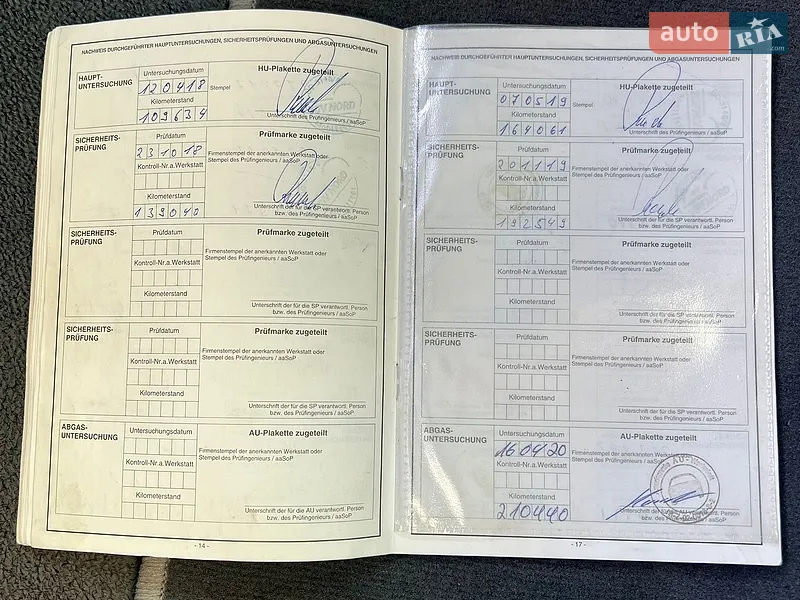 auto RIA .com
NACHWEIS DURCHGEFÜHRTER HAUPTUNTERSUCHUNGEN, SICHERHEITSPRÜFUNGEN UND ABGASUNTERSUCHUNGEN
HAUPT-
UNTERSUCHUNG
Untersuchungsdatum
120418
Kilometerstand
109634
Stempel
HU-Plakette zugeteilt
Unterschrift des Prüfingenieurs / aaSoP
SICHERHEITS-
PRÜFUNG
Prüfdatum
231018
Kontroll-Nr.a.Werkstatt
Kilometerstand
139040
Prüfmarke zugeteilt
Firmenstempel der anerkannten Werkstatt oder
Stempel des Prüfingenieurs / aaSoP
Unterschrift der für die SP verantwortl. Person
bzw. des Prüfingenieurs / aaSoP
SICHERHEITS-
PRÜFUNG
Prüfdatum
Kontroll-Nr.a.Werkstatt
Kilometerstand
Prüfmarke zugeteilt
Firmenstempel der anerkannten Werkstatt oder
Stempel des Prüfingenieurs / aaSoP
Unterschrift der für die SP verantwortl. Person
bzw. des Prüfingenieurs / aaSoP
SICHERHEITS-
PRÜFUNG
Prüfdatum
Kontroll-Nr.a.Werkstatt
Kilometerstand
Prüfmarke zugeteilt
Firmenstempel der anerkannten Werkstatt oder
Stempel des Prüfingenieurs / aaSoP
Unterschrift der für die SP verantwortl. Person
bzw. des Prüfingenieurs / aaSoP
ABGAS-
UNTERSUCHUNG
Untersuchungsdatum
Kontroll-Nr.a.Werkstatt
Kilometerstand
AU-Plakette zugeteilt
Firmenstempel der anerkannten Werkstatt oder
Stempel des Prüfingenieurs / aaSoP
Unterschrift der für die AU verantwortl. Person
bzw. des Prüfingenieurs / aaSoP
- 14 -
NACHWEIS DURCHGEFÜHRTER HAUPTUNTERSUCHUNGEN, SICHERHEITSPRÜFUNGEN UND ABGASUNTERSUCHUNGEN
HAUPT-
UNTERSUCHUNG
Untersuchungsdatum
070519
Kilometerstand
164061
Stempel
HU-Plakette zugeteilt
Unterschrift des Prüfingenieurs / aaSoP
SICHERHEITS-
PRÜFUNG
Prüfdatum
201119
Kontroll-Nr.a.Werkstatt
Kilometerstand
192549
Prüfmarke zugeteilt
Firmenstempel der anerkannten Werkstatt oder
Stempel des Prüfingenieurs / aaSoP
Unterschrift der für die SP verantwortl. Person
bzw. des Prüfingenieurs / aaSoP
SICHERHEITS-
PRÜFUNG
Prüfdatum
Kontroll-Nr.a.Werkstatt
Kilometerstand
Prüfmarke zugeteilt
Firmenstempel der anerkannten Werkstatt oder
Stempel des Prüfingenieurs / aaSoP
Unterschrift der für die SP verantwortl. Person
bzw. des Prüfingenieurs / aaSoP
SICHERHEITS-
PRÜFUNG
Prüfdatum
Kontroll-Nr.a.Werkstatt
Kilometerstand
Prüfmarke zugeteilt
Firmenstempel der anerkannten Werkstatt oder
Stempel des Prüfingenieurs / aaSoP
Unterschrift der für die SP verantwortl. Person
bzw. des Prüfingenieurs / aaSoP
ABGAS-
UNTERSUCHUNG
Untersuchungsdatum
160420
Kontroll-Nr.a.Werkstatt
Kilometerstand
210440
AU-Plakette zugeteilt
Firmenstempel der anerkannten Werkstatt oder
Stempel des Prüfingenieurs / aaSoP
Unterschrift der für die AU verantwortl. Person
bzw. des Prüfingenieurs / aaSoP
- 17 -